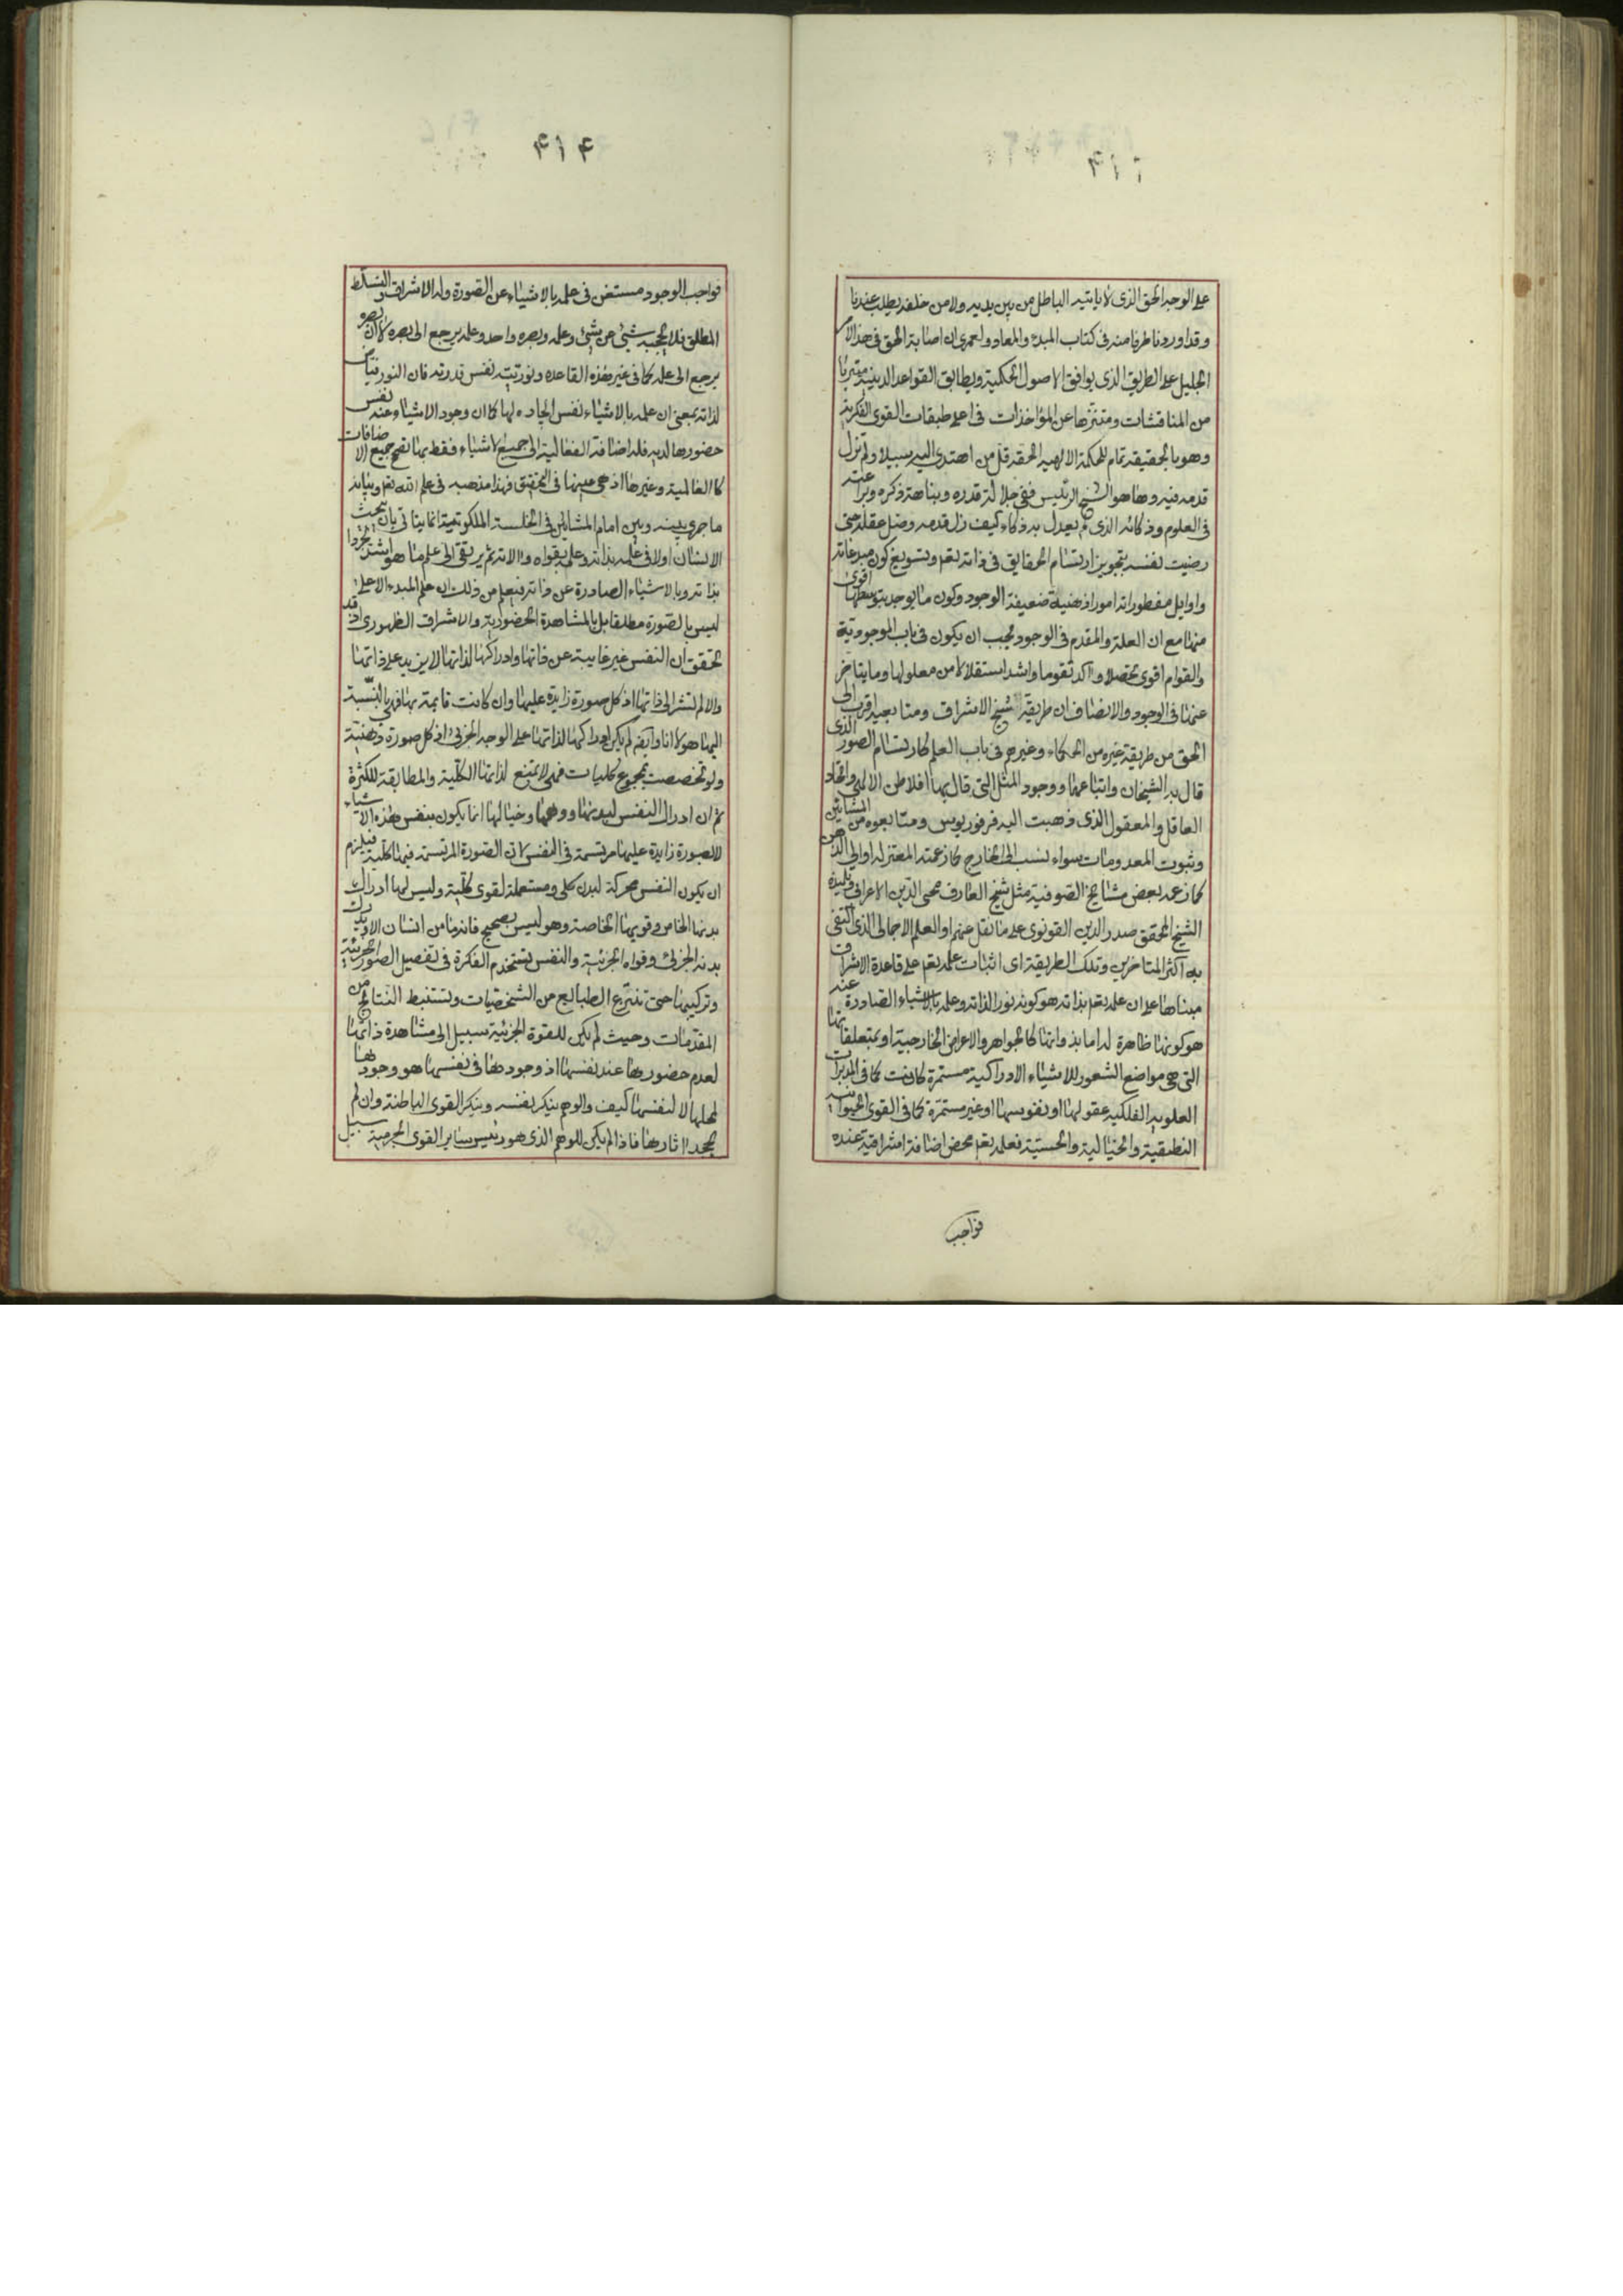 على الوجه الحق الذى لا ياتيه الباطل من بين يديه ولا من خلفه يطلب عندنا
وقد اوردنا طرفا منه فى كتاب المبدء والمعاد ولعمرى ان اصابة الحق فى هذا الامر
الجليل على الطريق الذى يوافق الاصول الحكمية ويطابق القواعد الدينية متبريا
من المناقشات ومتنزها عن المؤاخذات فى اعلى طبقات القوى الفكرية
وهو بالحقيقة تمام الحكمة الالهية الحقة قل من اهتدى اليه سبيلا ولم تزل
قدمه فيه وها هو الشيخ الرئيس ففى جلالة قدره ونباهة ذكره وبراعته
فى العلوم وذكائه الذى لم يعدل به ذكاء كيف زل قدمه وضل عقله حتى
رضيت نفسه بتجويز ارتسام الحقايق فى ذاته تعم وتسويغ كون مبدعاته
واوايل مفطوراته امورا ذهنية ضعيفة الوجود وكون ما يوجد بتوسطها اقوى
منها مع ان العلة والمقدم فى الوجود يجب ان يكون فى باب الموجودية
والقوام اقوى تحصلا وآكد تقوما واشد استقلالا من معلولها وما يتاخر
عنها فى الوجود والانصاف ان طريقة شيخ الاشراق ومتابعيه اقرب الى
الحق من طريقة غيره من الحكماء وغيرهم فى باب العلم كارتسام الصور الذى
قال به الشيخان واتباعهما ووجود المثل التى قال بها افلاطن الالهى واتحاد
العاقل والمعقول الذى ذهبت اليه فرفوريوس ومتابعوه من المشائين
وثبوت المعدومات سواء نسب الى الخارج كما زعمته المعتزله او الى الذهن
كما زعمه بعض مشايخ الصوفية مثل شيخ العارف محى الدين الاعرابى وتلميذه
الشيخ المحقق صدر الدين القونوى على ما نقل عنهم او العلم الاجمالى الذى اكتفى
به اكثر المتاخرين وتلك الطريقة اى اثبات علمه تعم على قاعدة الاشراق
مبناها على ان علمه تعم بذاته هو كونه نورا لذاته وعلمه بالاشياء الصادرة عنه
هو كونها ظاهرة له اما بذواتها كالجواهر والاعراض الخارجية او بمتعلقاتها
التى هى مواضع الشعور للاشياء الادراكية مستمرة كانت كما فى المدبرات
العلويه الفلكيه عقولها او نفوسها او غير مستمرة كما فى القوى الحيوانيه
النطقية والخيالية والحسية فعلمه تعم محض اضافة اشراقية عنده
فواجب
۴۱۴
فواجب الوجود مستغن فى علمه بالاشياء عن الصورة وله الاشراق والتسلط
المطلق فلا يحجبه شىء عن شىء وعلمه وبصره واحد وعلمه يرجع الى بصره لا ان بصره
يرجع الى علمه كما فى غير هذه القاعده ونوريته نفس قدرته فان النور فياض
لذاته بمعنى ان علمه بالاشياء نفس ايجاده لها كما ان وجود الاشياء عنه نفس
حضورها لديه فله اضافة الفعالية الى جميع الاشياء فقط بها تصح جميع الاضافات
كالعالمية وغيرها اذ هى عينها فى التحقيق فهذا مذهبه فى علم الله تعم وبيانه
ما جرى بينه وبين امام المشائين فى الخلسة الملكوتية انما يتاتى بان يبحث
الانسان اولا فى علمه بذاته وعلمه بقواه والاته ثم يرتقى الى علم ما هو اشد تجردا
بذاته وبالاشياء الصادرة عن ذاته فيعلم من ذلك ان علم المبدء الاعلى
ليس بالصورة مطلقا بل بالمشاهدة الحضورية والاشراق الظهورى اذ قد
تحقق ان النفس غير غايبة عن ذاتها وادراكها لذاتها لا يزيد على ذاتها
والا لم تشر الى ذاتها اذ كل صورة زايدة عليها وان كانت قايمة بها فهى بالنسبة
اليها هو لا انا وايضا لم يكن ادراكها لذاتها على الوجه الجزئى اذ كل صورة ذهنية
ولو تخصصت بمجموع كليات فهى لا تمنع لذاتها الكلية والمطابقة للكثرة
ثم ان ادراك النفس لبدنها ووهمها وخيالها انما يكون بنفس هذه الاشياء
لا بصورة زايدة عليها مرتسمة فى النفس لان الصورة المرتسمة فيها كلية فيلزم
ان يكون النفس محركة لبدن كلى ومستعملة لقوى كلية وليس لها ادراك
بدنها الخاص وقويها الخاصة وهو ليس بصحيح فانه ما من انسان الا ويدرك
بدنه الجزئى وقواه الجزئية والنفس تستخدم الفكرة فى تفصيل الصور الجزئية
وتركيبها حتى تنتزع الطبايع من الشخصيات وتستنبط النتايج من
المقدمات وحيث لم يكن للقوة الجزئية سبيل الى مشاهدة ذاتها
لعدم حضورها عند نفسها اذ وجودها فى نفسها هو وجودها
لمحلها لا لنفسها كيف والوهم ينكر نفسه وينكر القوى الباطنة وان لم
يجحد اثارها فاذا لم يكن للوهم الذى هو رئيس ساير القوى الجرمية سبيل